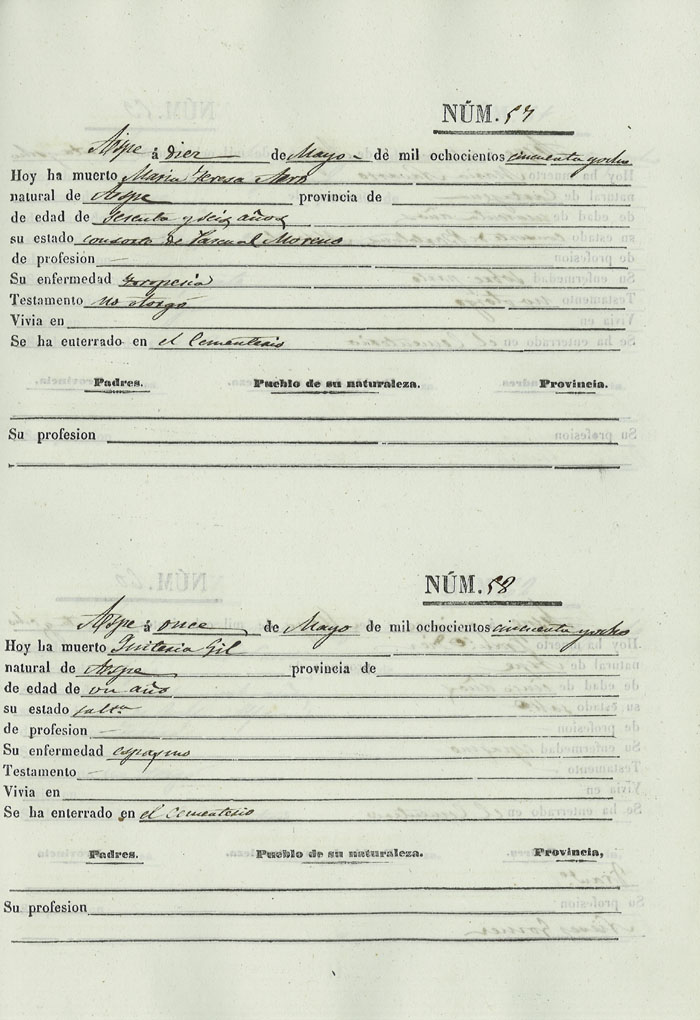 NÚM. 57
Aspe á diez de Mayo de mil ochocientos cincuenta y ocho
Hoy ha muerto Maria Teresa
natural de Aspe provincia de
de edad de Sesenta y seis años
su estado consorte de Pascual Moreno
de profesion —
Su enfermedad Ydropesia
Testamento no otorgó
Vivia en
Se ha enterrado en el Cementerio
Padres. Pueblo de su naturaleza. Provincia.
Su profesion
NÚM. 58
Aspe á once de Mayo de mil ochocientos cincuenta y ocho
Hoy ha muerto Quiteria Gil
natural de Aspe provincia de
de edad de un año
su estado solta
de profesion —
Su enfermedad espasmo
Testamento —
Vivia en
Se ha enterrado en el Cementerio
Padres. Pueblo de su naturaleza. Provincia,
Su profesion